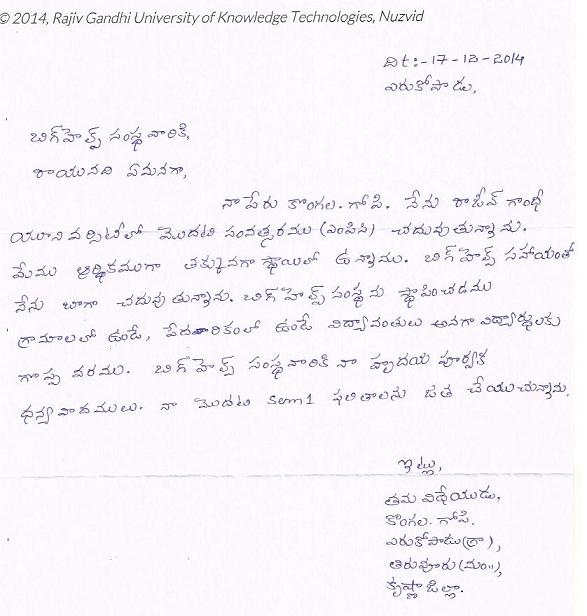 © 2014, Rajiv Gandhi University of Knowledge Technologies, Nuzvid
Dt:-17-12-2014
ఎరుకోపాడు,
బిగ్‌హెల్ప్ సంస్థ వారికి,
రాయునది ఏమనగా,
నా పేరు కొంగల. గోపి. నేను రాజీవ్ గాంధీ
యూనివర్సిటీలో మొదటి సంవత్సరము (ఎంపిసి) చదువుతున్నాను.
మేము ఆర్థికముగా తక్కువగా స్థాయిలో ఉన్నాము. బిగ్ హెల్ప్ సహాయంతో
నేను బాగా చదువుతున్నాను. బిగ్ హెల్ప్ సంస్థను స్థాపించడము
గ్రామాలలో ఉండే, పేదరికంలో ఉండే విద్యావంతులు అనగా విద్యార్థులకు
గొప్ప వరము. బిగ్ హెల్ప్ సంస్థవారికి నా హృదయ పూర్వక
ధన్యవాదములు. నా మొదటి sem1 ఫలితాలను జత చేయుచున్నాను.
ఇట్లు,
తమ విధేయుడు,
కొంగల. గోపి.
ఎరుకోపాడు(గ్రా),
తిరువూరు(మం॥),
కృష్ణా జిల్లా.